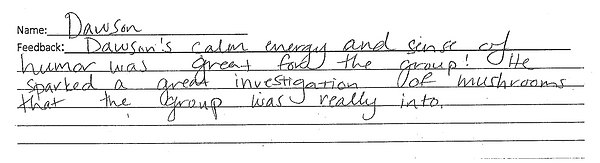 Name: Dawson
Feedback: Dawson's calm energy and sense of
humor was great for the group! He
sparked a great investigation of mushrooms
that the group was really into.